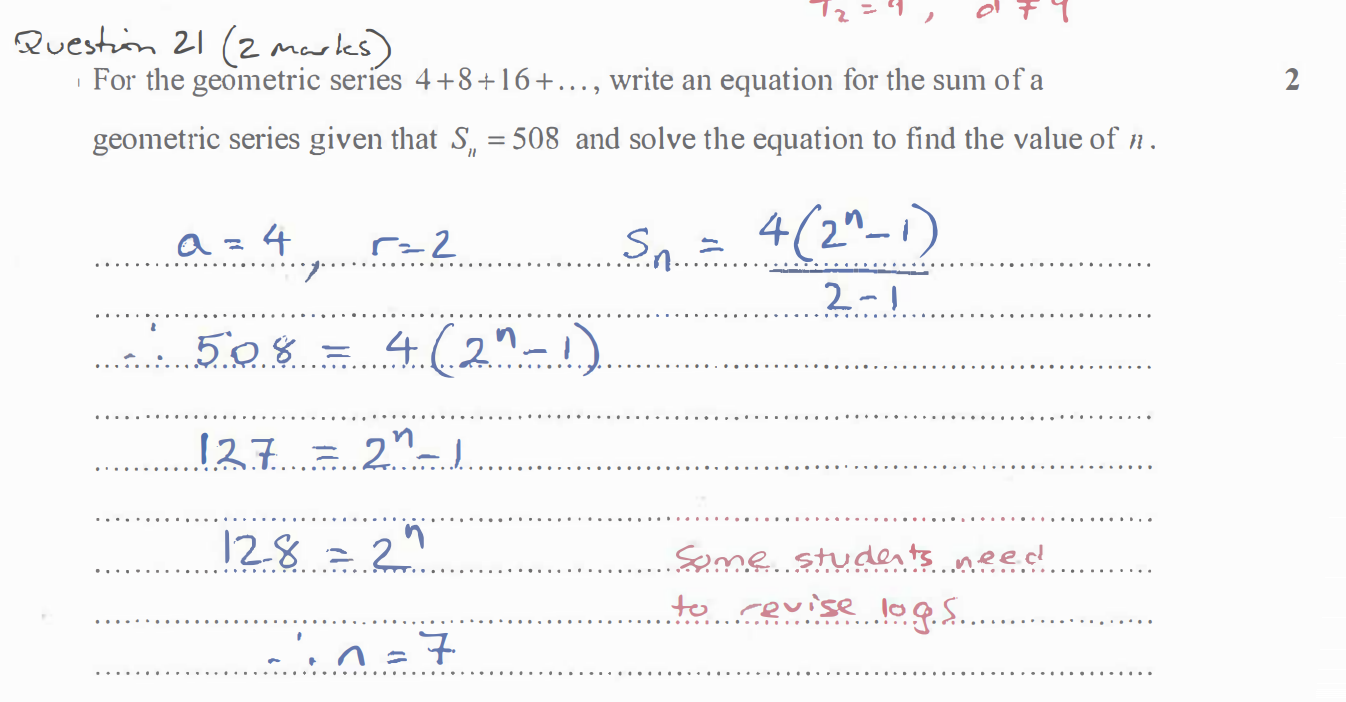 T₂ = 9, d ≠ 9
Question 21 (2 marks)
For the geometric series 4+8+16+..., write an equation for the sum of a 2
geometric series given that Sₙ = 508 and solve the equation to find the value of n.
a = 4, r=2 Sₙ = 4(2ⁿ-1)
2-1
∴ 508 = 4(2ⁿ-1)
127 = 2ⁿ-1
128 = 2ⁿ
Some students need
to revise logs
∴ n = 7